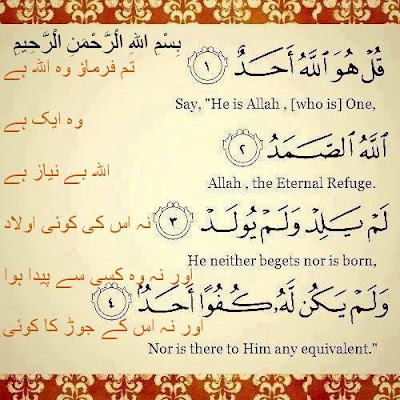 بِسْمِ اللهِ الْرَّحْمَنِ الْرَّحِيمِ
قُلْ هُوَ ٱللَّهُ أَحَدٌ ١
تم فرماؤ وہ اللہ ہے
Say, "He is Allah , [who is] One,
وہ ایک ہے
ٱللَّهُ ٱلصَّمَدُ ٢
اللہ بے نیاز ہے
Allah , the Eternal Refuge.
لَمْ يَلِدْ وَلَمْ يُولَدْ ٣
نہ اس کی کوئی اولاد
He neither begets nor is born,
اور نہ وہ کسی سے پیدا ہوا
وَلَمْ يَكُن لَّهُۥ كُفُوًا أَحَدٌۢ ٤
اور نہ اس کے جوڑ کا کوئی
Nor is there to Him any equivalent."